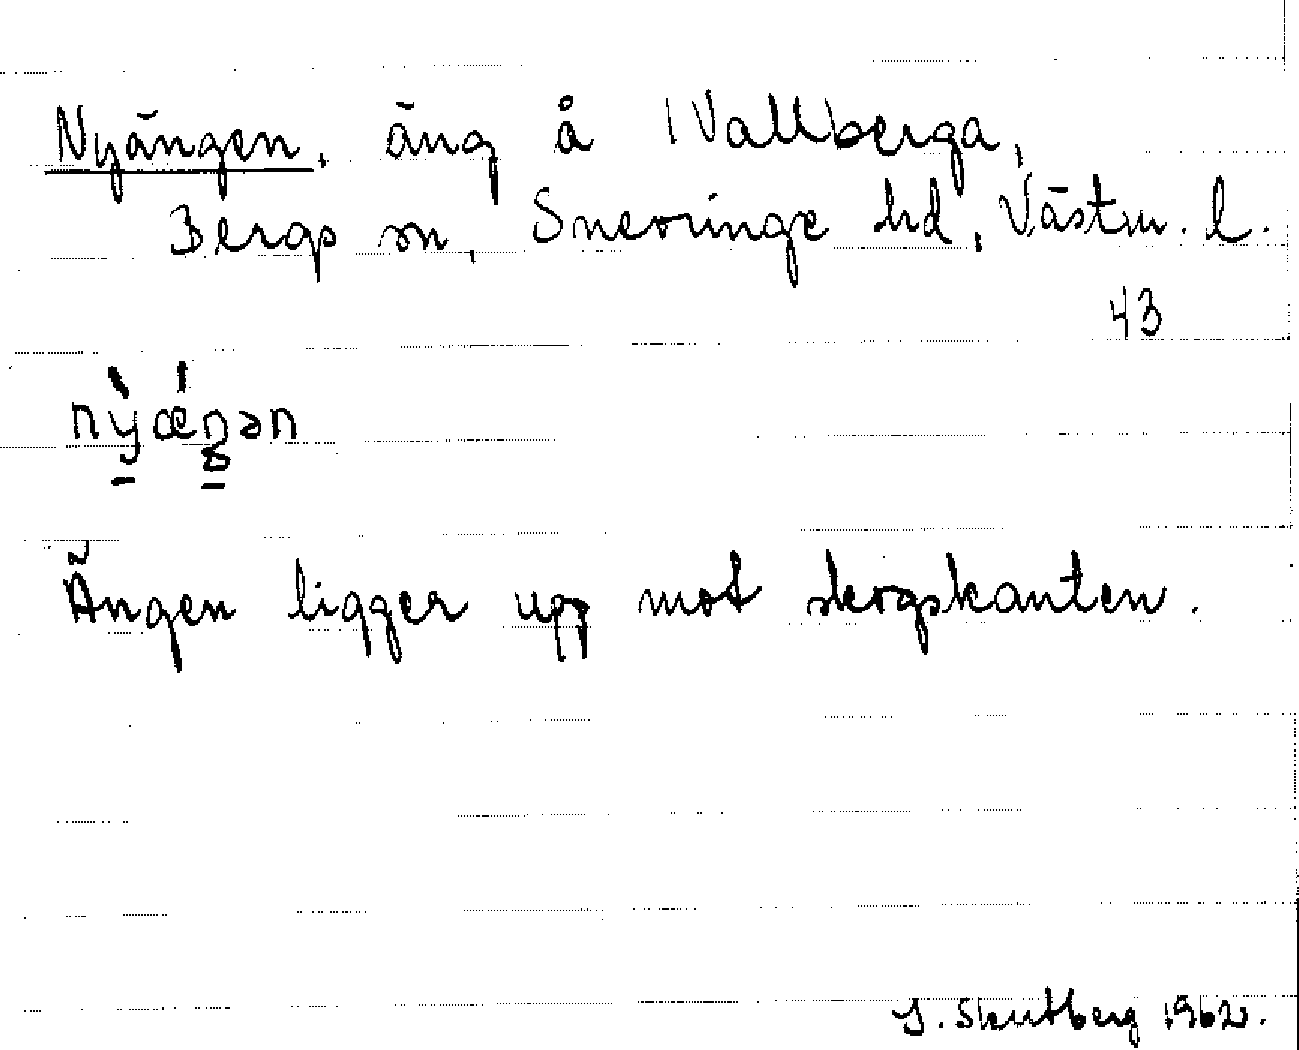 Nyängen, äng å Vallberga,
Bergs sn, Snevringe hd, Västm. l.
43
nỳǽŋən
Ängen ligger upp mot skogskanten.
S. Skutberg 1962.